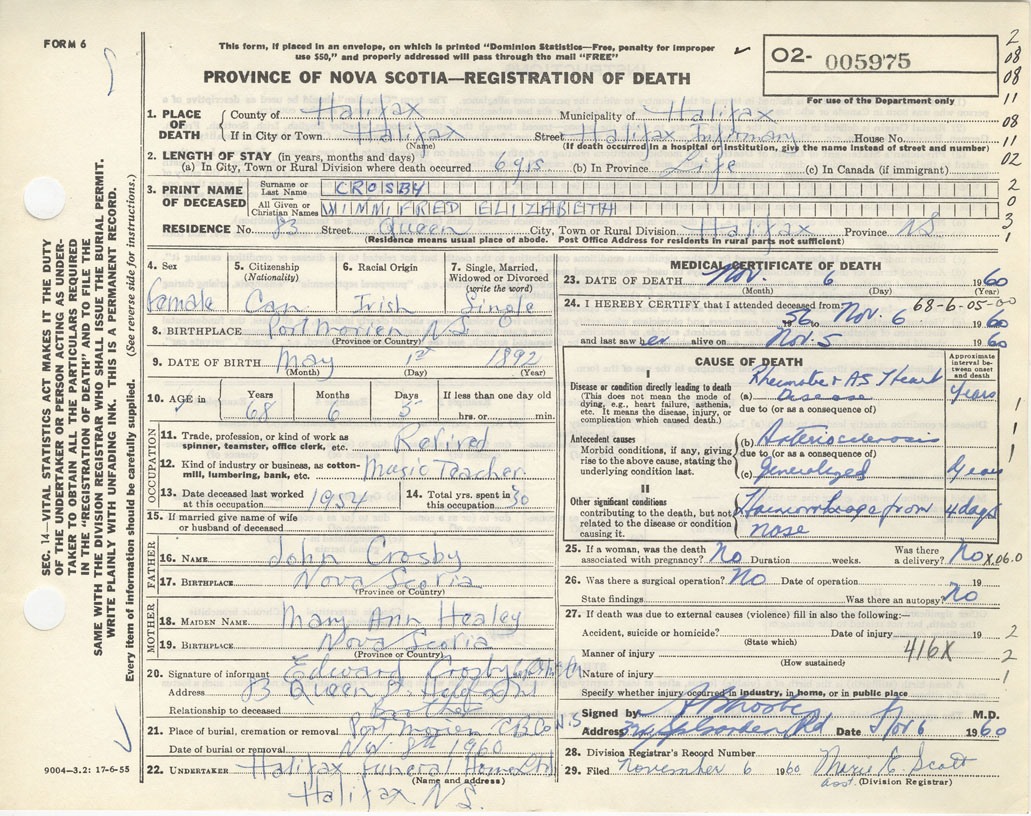 FORM 6
This form, if placed in an envelope, on which is printed "Dominion Statistics—Free, penalty for improper
use $50," and properly addressed will pass through the mail "FREE"
PROVINCE OF NOVA SCOTIA—REGISTRATION OF DEATH
O2- 005975
For use of the Department only
2
08
08
11
08
11
02
2
0
3
1
1. PLACE OF DEATH
County of Halifax Municipality of Halifax
If in City or Town Halifax Street Halifax Infirmary House No.
(Name) (If death occurred in a hospital or institution, give the name instead of street and number)
2. LENGTH OF STAY (in years, months and days)
(a) In City, Town or Rural Division where death occurred 6 yrs (b) In Province Life (c) In Canada (if immigrant)
3. PRINT NAME OF DECEASED
Surname or Last Name CROSBY
All Given or Christian Names WINNIFRED ELIZABETH
RESIDENCE No. 83 Street Queen City, Town or Rural Division Halifax Province NS
(Residence means usual place of abode. Post Office Address for residents in rural parts not sufficient)
4. Sex Female
5. Citizenship (Nationality) Can
6. Racial Origin Irish
7. Single, Married, Widowed or Divorced (write the word) Single
8. BIRTHPLACE Port Morien NS
(Province or Country)
9. DATE OF BIRTH May 1st 1892
(Month) (Day) (Year)
10. AGE in Years 68 Months 6 Days 5 If less than one day old hrs. or min.
OCCUPATION
11. Trade, profession, or kind of work as spinner, teamster, office clerk, etc. Retired
12. Kind of industry or business, as cotton-mill, lumbering, bank, etc. Music Teacher
13. Date deceased last worked at this occupation 1954
14. Total yrs. spent in this occupation 30
15. If married give name of wife or husband of deceased
FATHER
16. NAME John Crosby
17. BIRTHPLACE Nova Scotia
(Province or Country)
MOTHER
18. MAIDEN NAME Mary Ann Healey
19. BIRTHPLACE Nova Scotia
(Province or Country)
20. Signature of informant Edward Crosby
Address 83 Queen St.
Relationship to deceased Brother
21. Place of burial, cremation or removal Port Morien C.B. Co N.S
Date of burial or removal Nov. 8th 1960
22. UNDERTAKER Halifax Funeral Home Ltd
(Name and address)
Halifax NS.
MEDICAL CERTIFICATE OF DEATH
23. DATE OF DEATH Nov. 6 1960
(Month) (Day) (Year)
68-6-05-00
24. I HEREBY CERTIFY that I attended deceased from
1956 to Nov. 6 1960
and last saw her alive on Nov. 5 1960
CAUSE OF DEATH
Approximate interval between onset and death
I
Disease or condition directly leading to death
(This does not mean the mode of dying, e.g., heart failure, asthenia, etc. It means the disease, injury, or complication which caused death.)
(a) Rheumatic & AS Heart Disease years
due to (or as a consequence of)
Antecedent causes
Morbid conditions, if any, giving rise to the above cause, stating the underlying condition last.
(b) Arteriosclerosis
due to (or as a consequence of)
(c) Generalized years
II
Other significant conditions
contributing to the death, but not related to the disease or condition causing it.
Haemorrhage from nose 4 days
1
1
1
25. If a woman, was the death associated with pregnancy? No Duration weeks. Was there a delivery? No
X06.0
26. Was there a surgical operation? No Date of operation 19
State findings Was there an autopsy? No
27. If death was due to external causes (violence) fill in also the following:—
Accident, suicide or homicide? Date of injury 19
(State which)
2
Manner of injury 416X
(How sustained)
2
Nature of injury
1
Specify whether injury occurred in industry, in home, or in public place
Signed by M.D.
Address Rd Date Nov 6 1960
28. Division Registrar's Record Number
29. Filed November 6 1960 Marie E. Scott
asst. (Division Registrar)
SEC. 14—VITAL STATISTICS ACT MAKES IT THE DUTY
OF THE UNDERTAKER OR PERSON ACTING AS UNDER-
TAKER TO OBTAIN ALL THE PARTICULARS REQUIRED
IN THE "REGISTRATION OF DEATH" AND TO FILE THE
SAME WITH THE DIVISION REGISTRAR WHO SHALL ISSUE THE BURIAL PERMIT.
WRITE PLAINLY WITH UNFADING INK. THIS IS A PERMANENT RECORD.
Every item of information should be carefully supplied. (See reverse side for instructions.)
9004—3.2: 17-6-55